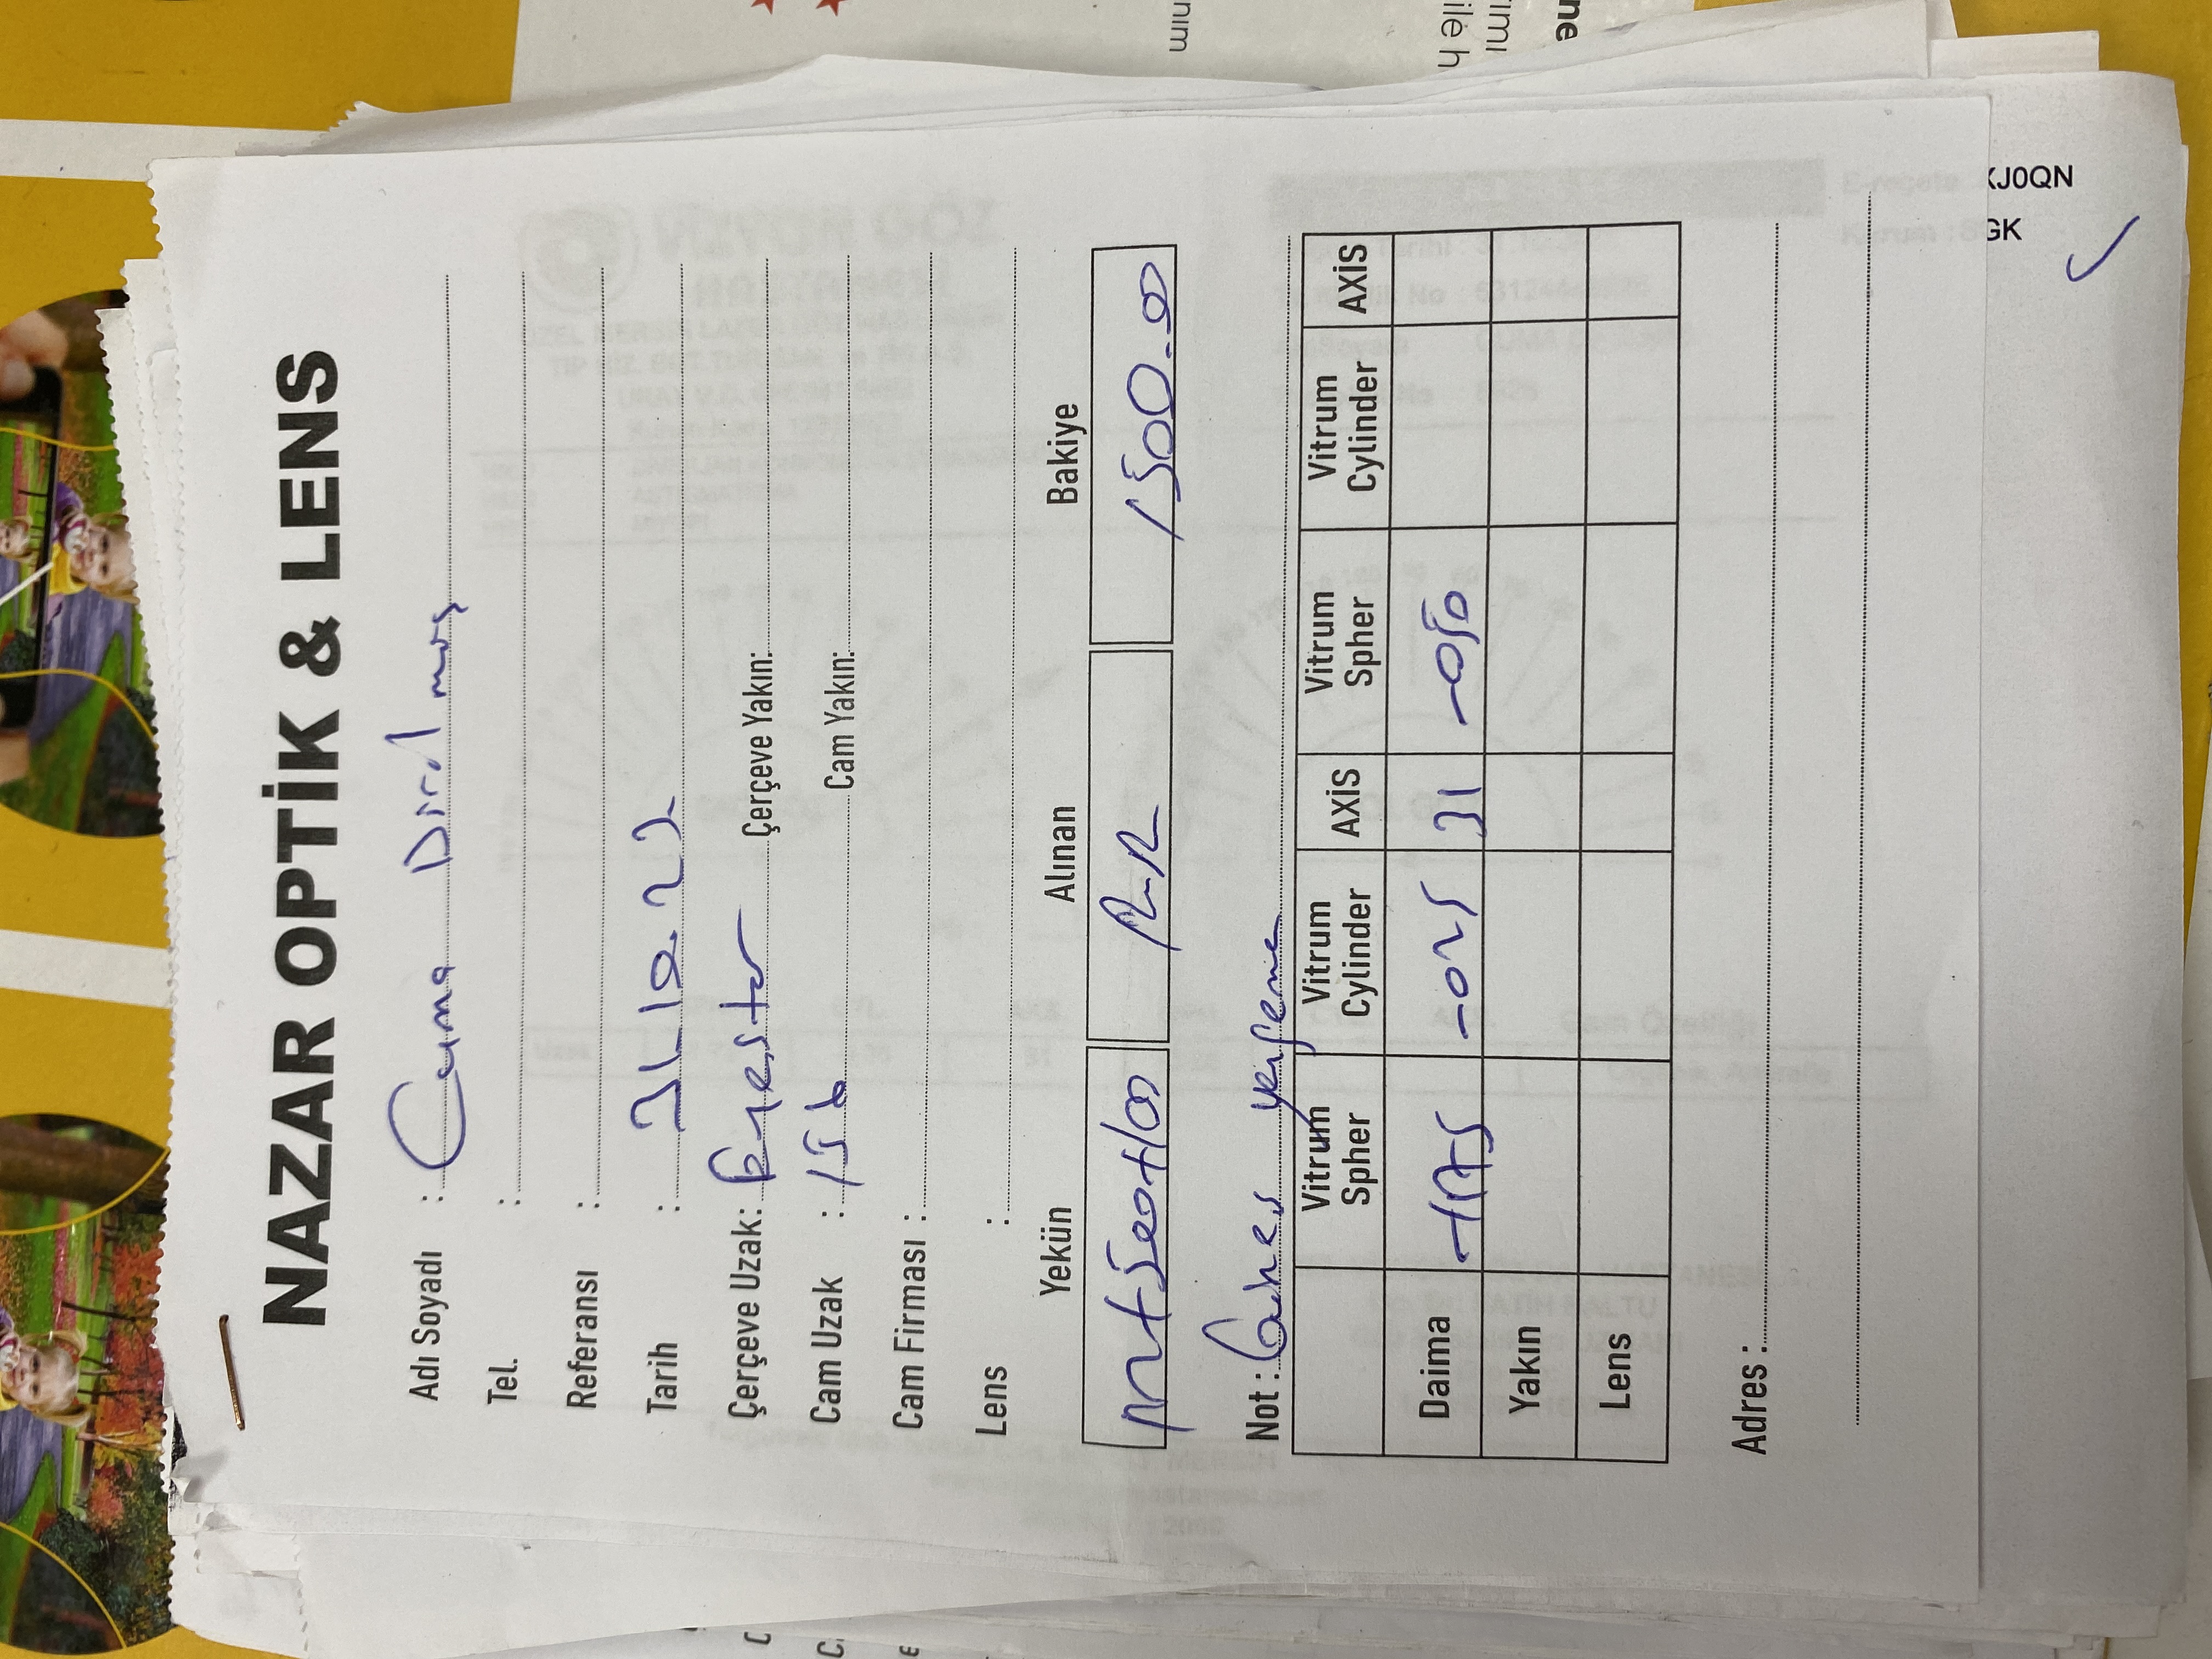 NAZAR OPTİK & LENS
Adı Soyadı : Cuma
Tel. :
Referansı :
Tarih : 31.10.22
Çerçeve Uzak: Çerçeve Yakın:
Cam Uzak : 156 Cam Yakın:
Cam Firması :
Lens :
Yekün Alınan Bakiye
M+500+100 1500.00
Not :
Vitrum Spher Vitrum Cylinder AXİS Vitrum Spher Vitrum Cylinder AXİS
Daima -175 -025 31 -050
Yakın
Lens
Adres :
GK
KJ0QN